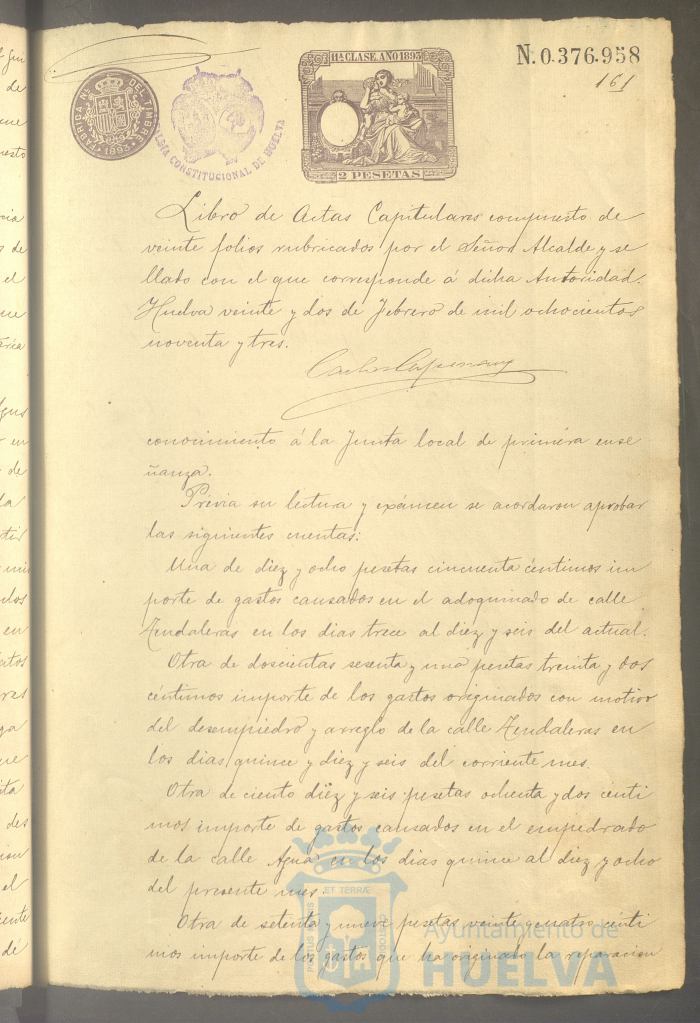 11ª CLASE. AÑO 1893
N. 0.376.958
161
FÁBRICA Nl. DEL TIMBRE
1893
ALDIA CONSTITUCIONAL DE HUELVA
2 PESETAS
Libro de Actas Capitulares compuesto de
veinte folios rubricados por el Señor Alcalde y se
llado con el que corresponde á dicha Autoridad.
Huelva veinte y dos de Febrero de mil ochocientos
noventa y tres.
conocimiento á la Junta local de primera ense
ñanza.
Previa su lectura y exámen se acordaron aprobar
las siguientes cuentas:
Una de diez y ocho pesetas cincuenta céntimos im
porte de gastos causados en el adoquinado de calle
Zendaleras en los dias trece al diez y seis del actual.
Otra de doscientas sesenta y una pesetas treinta y dos
céntimos importe de los gastos originados con motivo
del desempiedro y arreglo de la calle Zendaleras en
los dias quince y diez y seis del corriente mes.
Otra de ciento diez y seis pesetas ochenta y dos centi
mos importe de gastos causados en el empiedrado
de la calle Agua en los dias quince al diez y ocho
del presente mes.
Otra de setenta y nueve pesetas veinte y cuatro centi
mos importe de los gastos que ha originado la reparacion
PORTUS MARIS ET TERRÆ CUSTODIA
Ayuntamiento de
HUELVA